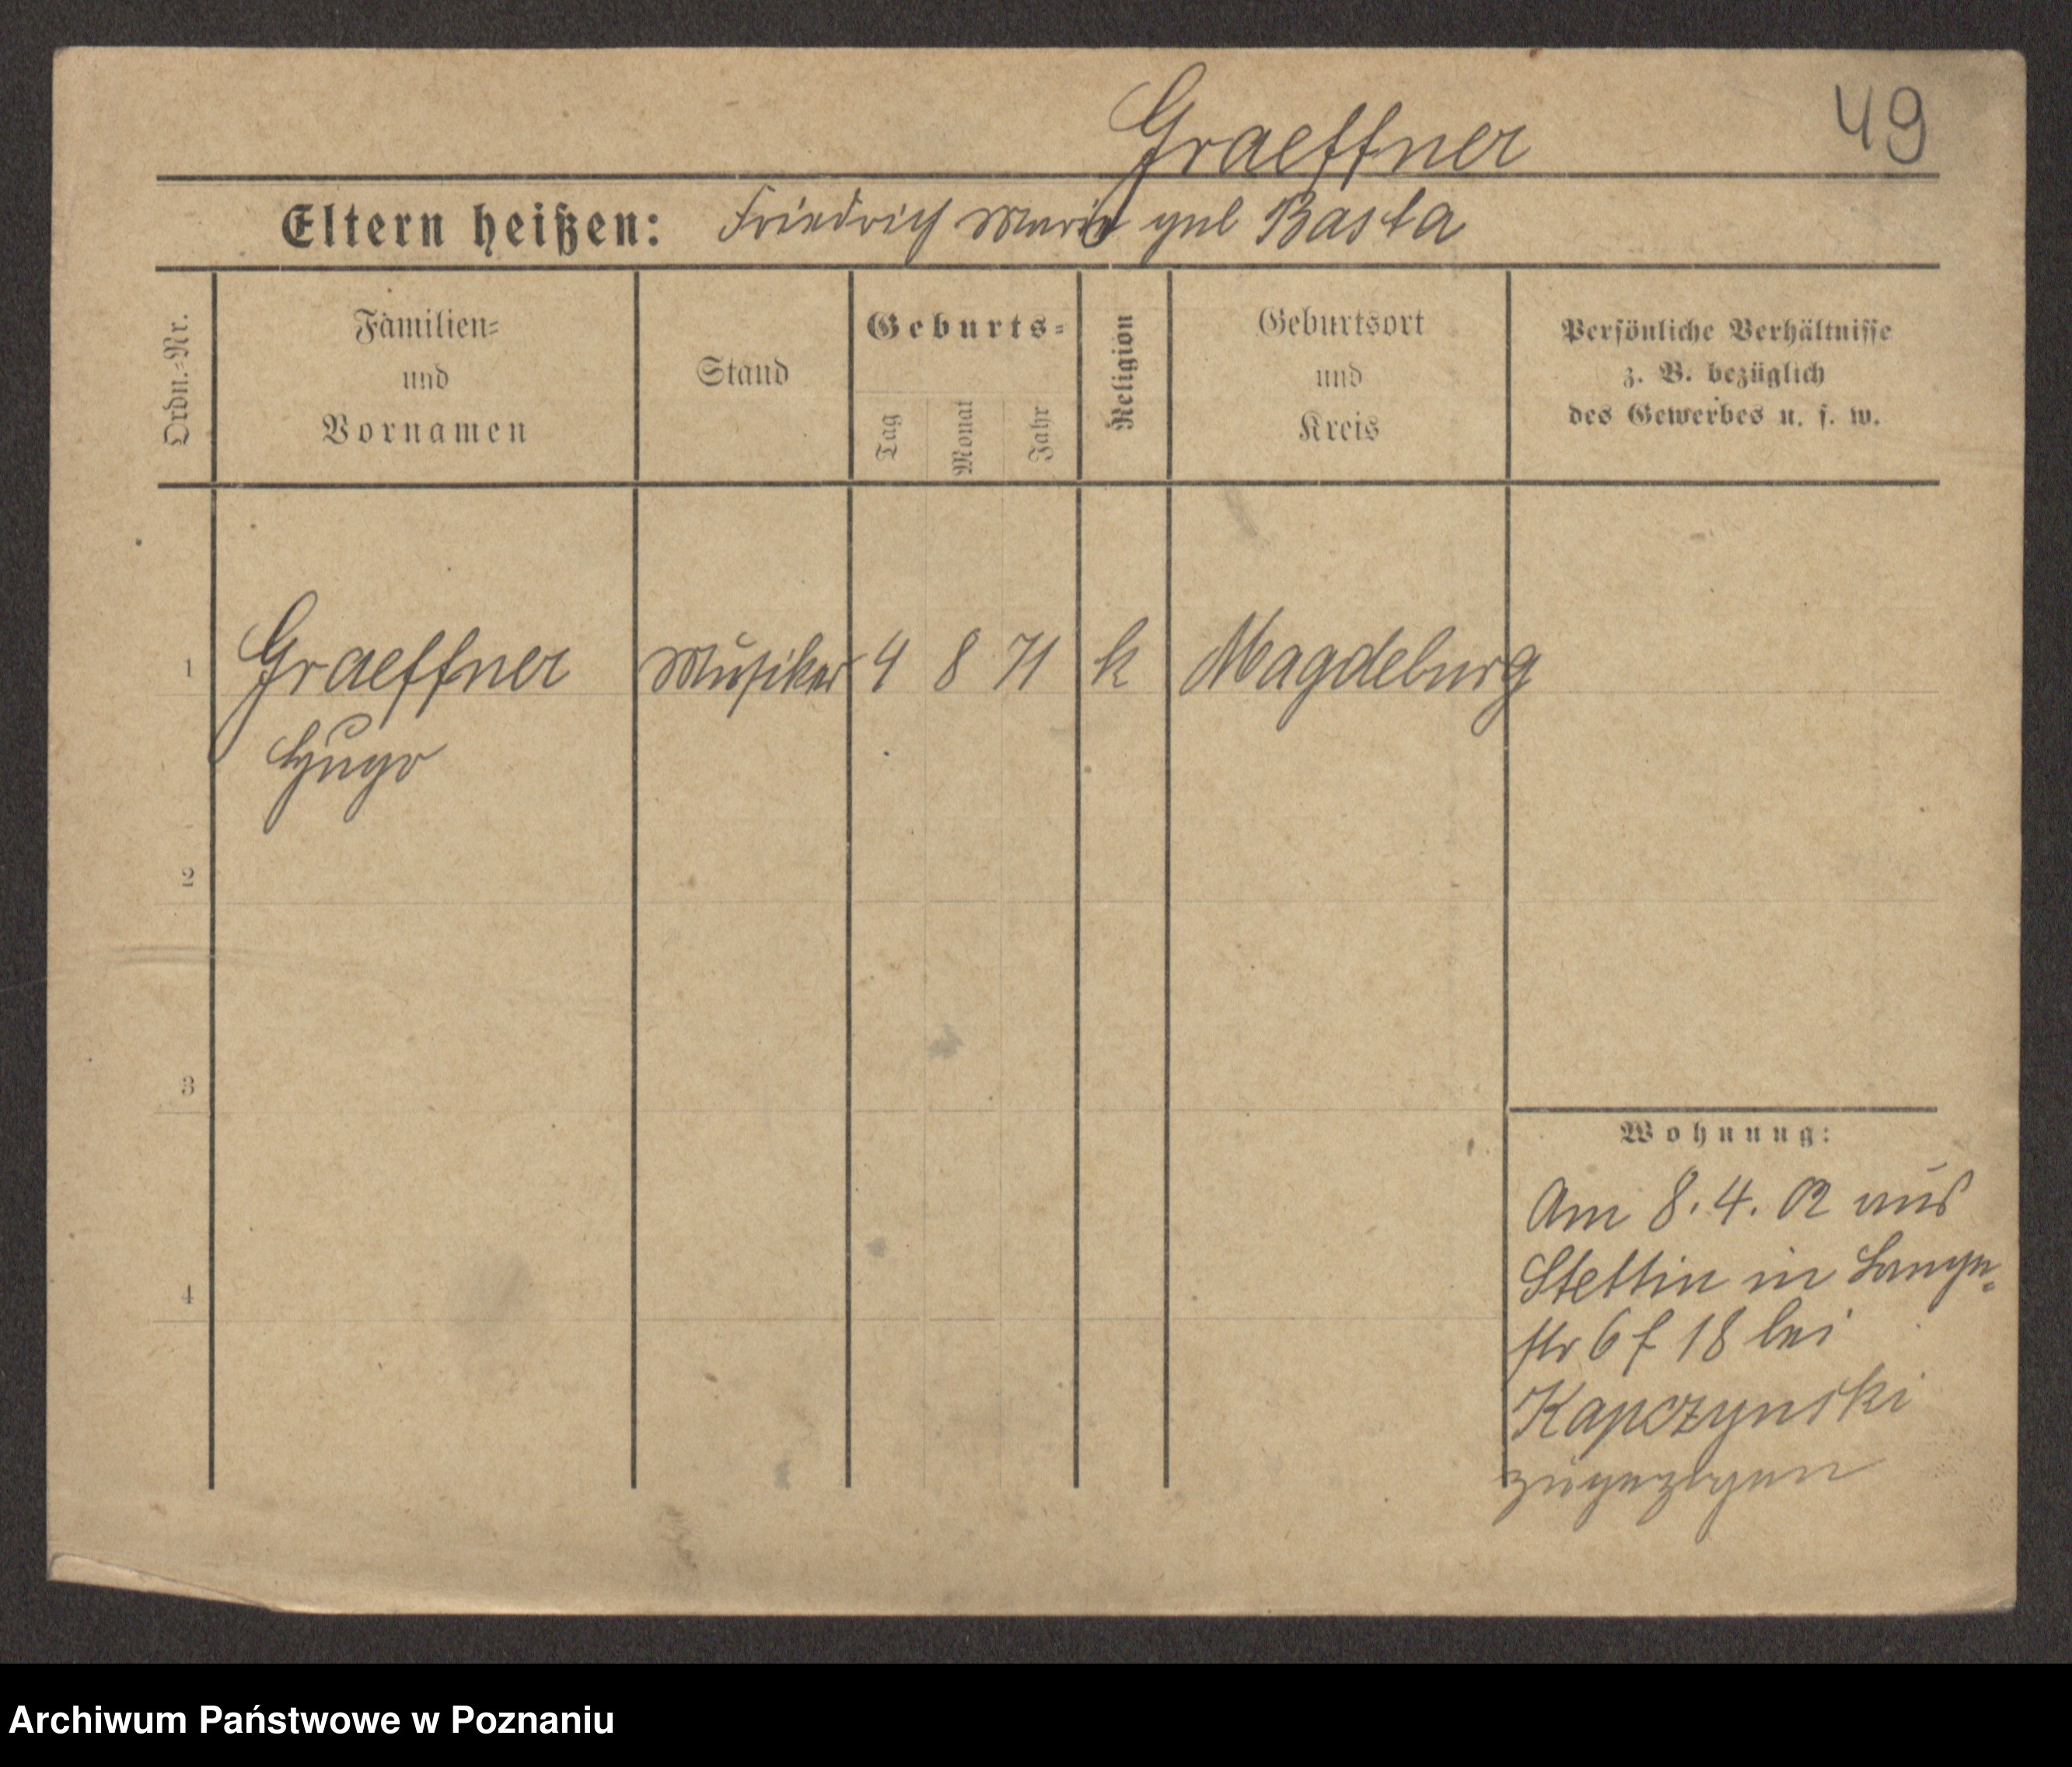 Graeffner
49
Eltern heißen: Friedrich Marie geb Basta
Ordn.-Nr.
Familien-
und
Vornamen
Stand
Geburts-
Tag
Monat
Jahr
Religion
Geburtsort
und
Kreis
Persönliche Verhältnisse
z. B. bezüglich
des Gewerbes u. s. w.
1 Graeffner Musiker 4 8 71 k Magdeburg
Hugo
2
3
4
Wohnung:
Am 8.4.02 aus
Stettin in Lange-
str 6 f 18 bei
Kapczynski
zugezogen
Archiwum Państwowe w Poznaniu